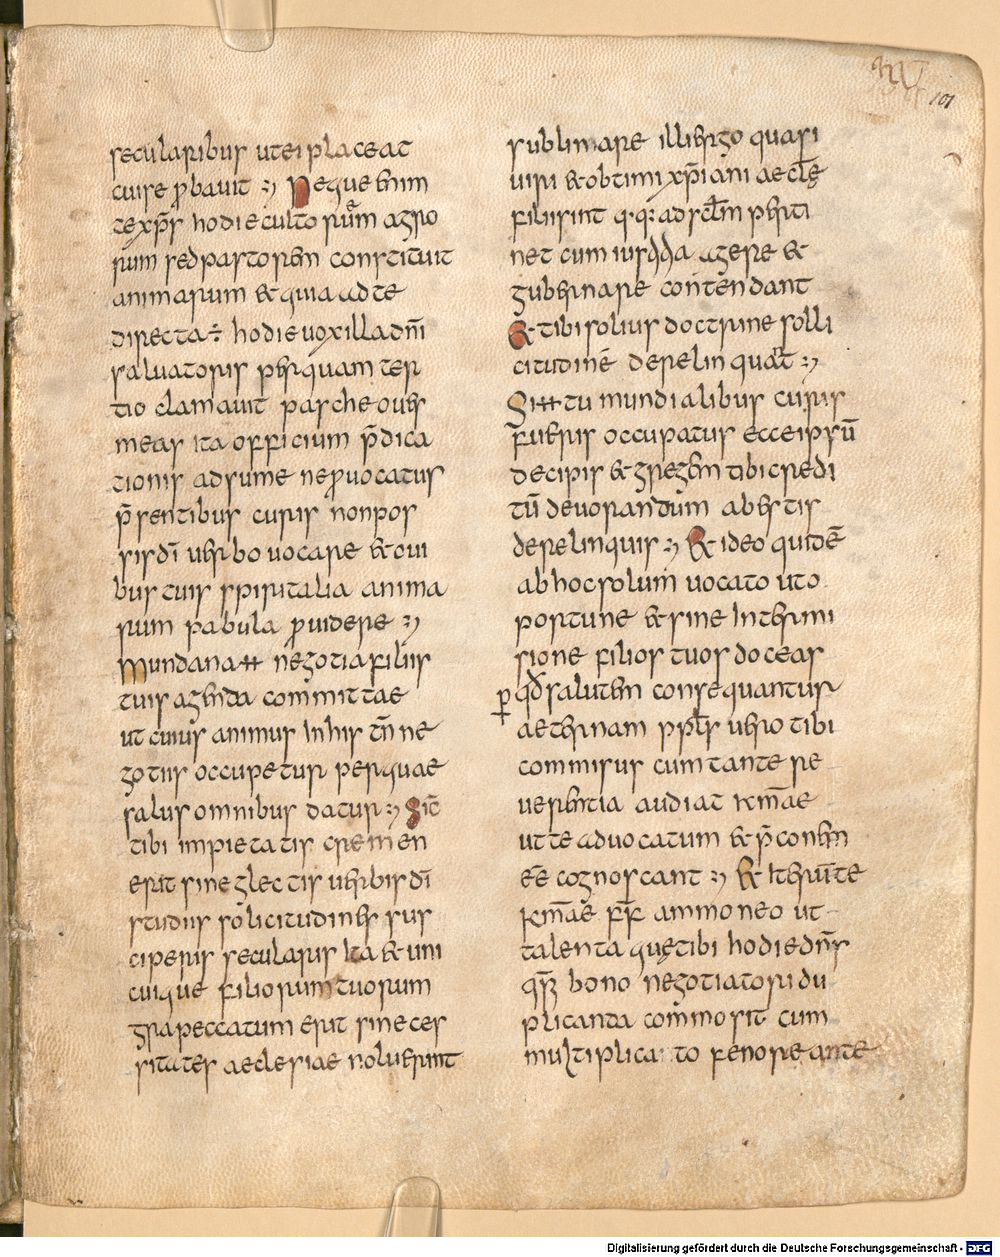 101
secularibus utei placeat
cui se probavit :, Neque enim
te xp̄s hodie cultorūm agro
rum sed pastorem constituit
animarum & quia ad te
directa ÷ hodie vox illa dn̄i
salvatoris per quam ter
tio clamavit pasche oves
meas ita officium p̄dica
tionis adsume ne provocatus
p̄sentibus curis non pos
sis dī verbo vocare & ovi
bus tuis spiritalia anima
rum pabula providere :,
Mundana ħ negotia filiis
tuis agenda committae
ut cuius animus in his tn̄ ne
gotiis occupetur per quae
salus omnibus datur :, Sic̄
tibi impietatis cremen
erit si neglectis verbis dī
studiis sollicitudines sus
ciperis secularis Ita & uni
cuique filiorum tuorum
gra peccatum erit si neces
sitates aeclesiae noluerint
sublimare illi ergo quasi
viri & obtimi xp̄iani aecl̄ę
filii sint q·q: ad scl̄m perti
net cum iusđđa agere &
gubernare contendant
& tibi solius doctrine solli
citudinē derelinquat̄ :,
Si ħ tu mundialibus curis
fueris occupatus ecce ipsū
decipis & gregem tibi credi
tū devorandum ab estis
derelinquis :, & ideo quidē
ab hoc solum vocato ut o
portune & sine Intermi
sione filios tuos doceas
p̱ qđ salutem consequantur
aeternam ppl̄s vero tibi
commisus cum tante re
verentia audiat km̄ae
ut te advocatum & p̄conem
eē cognoscant :, & Iterū te
km̄ae f̄f̄ ammoneo ut
talenta quę tibi hodie dn̄s
qs̄ bono negotiatori du
plicanda commosit cum
multiplicato fenore ante
Digitalisierung gefördert durch die Deutsche Forschungsgemeinschaft - DFG